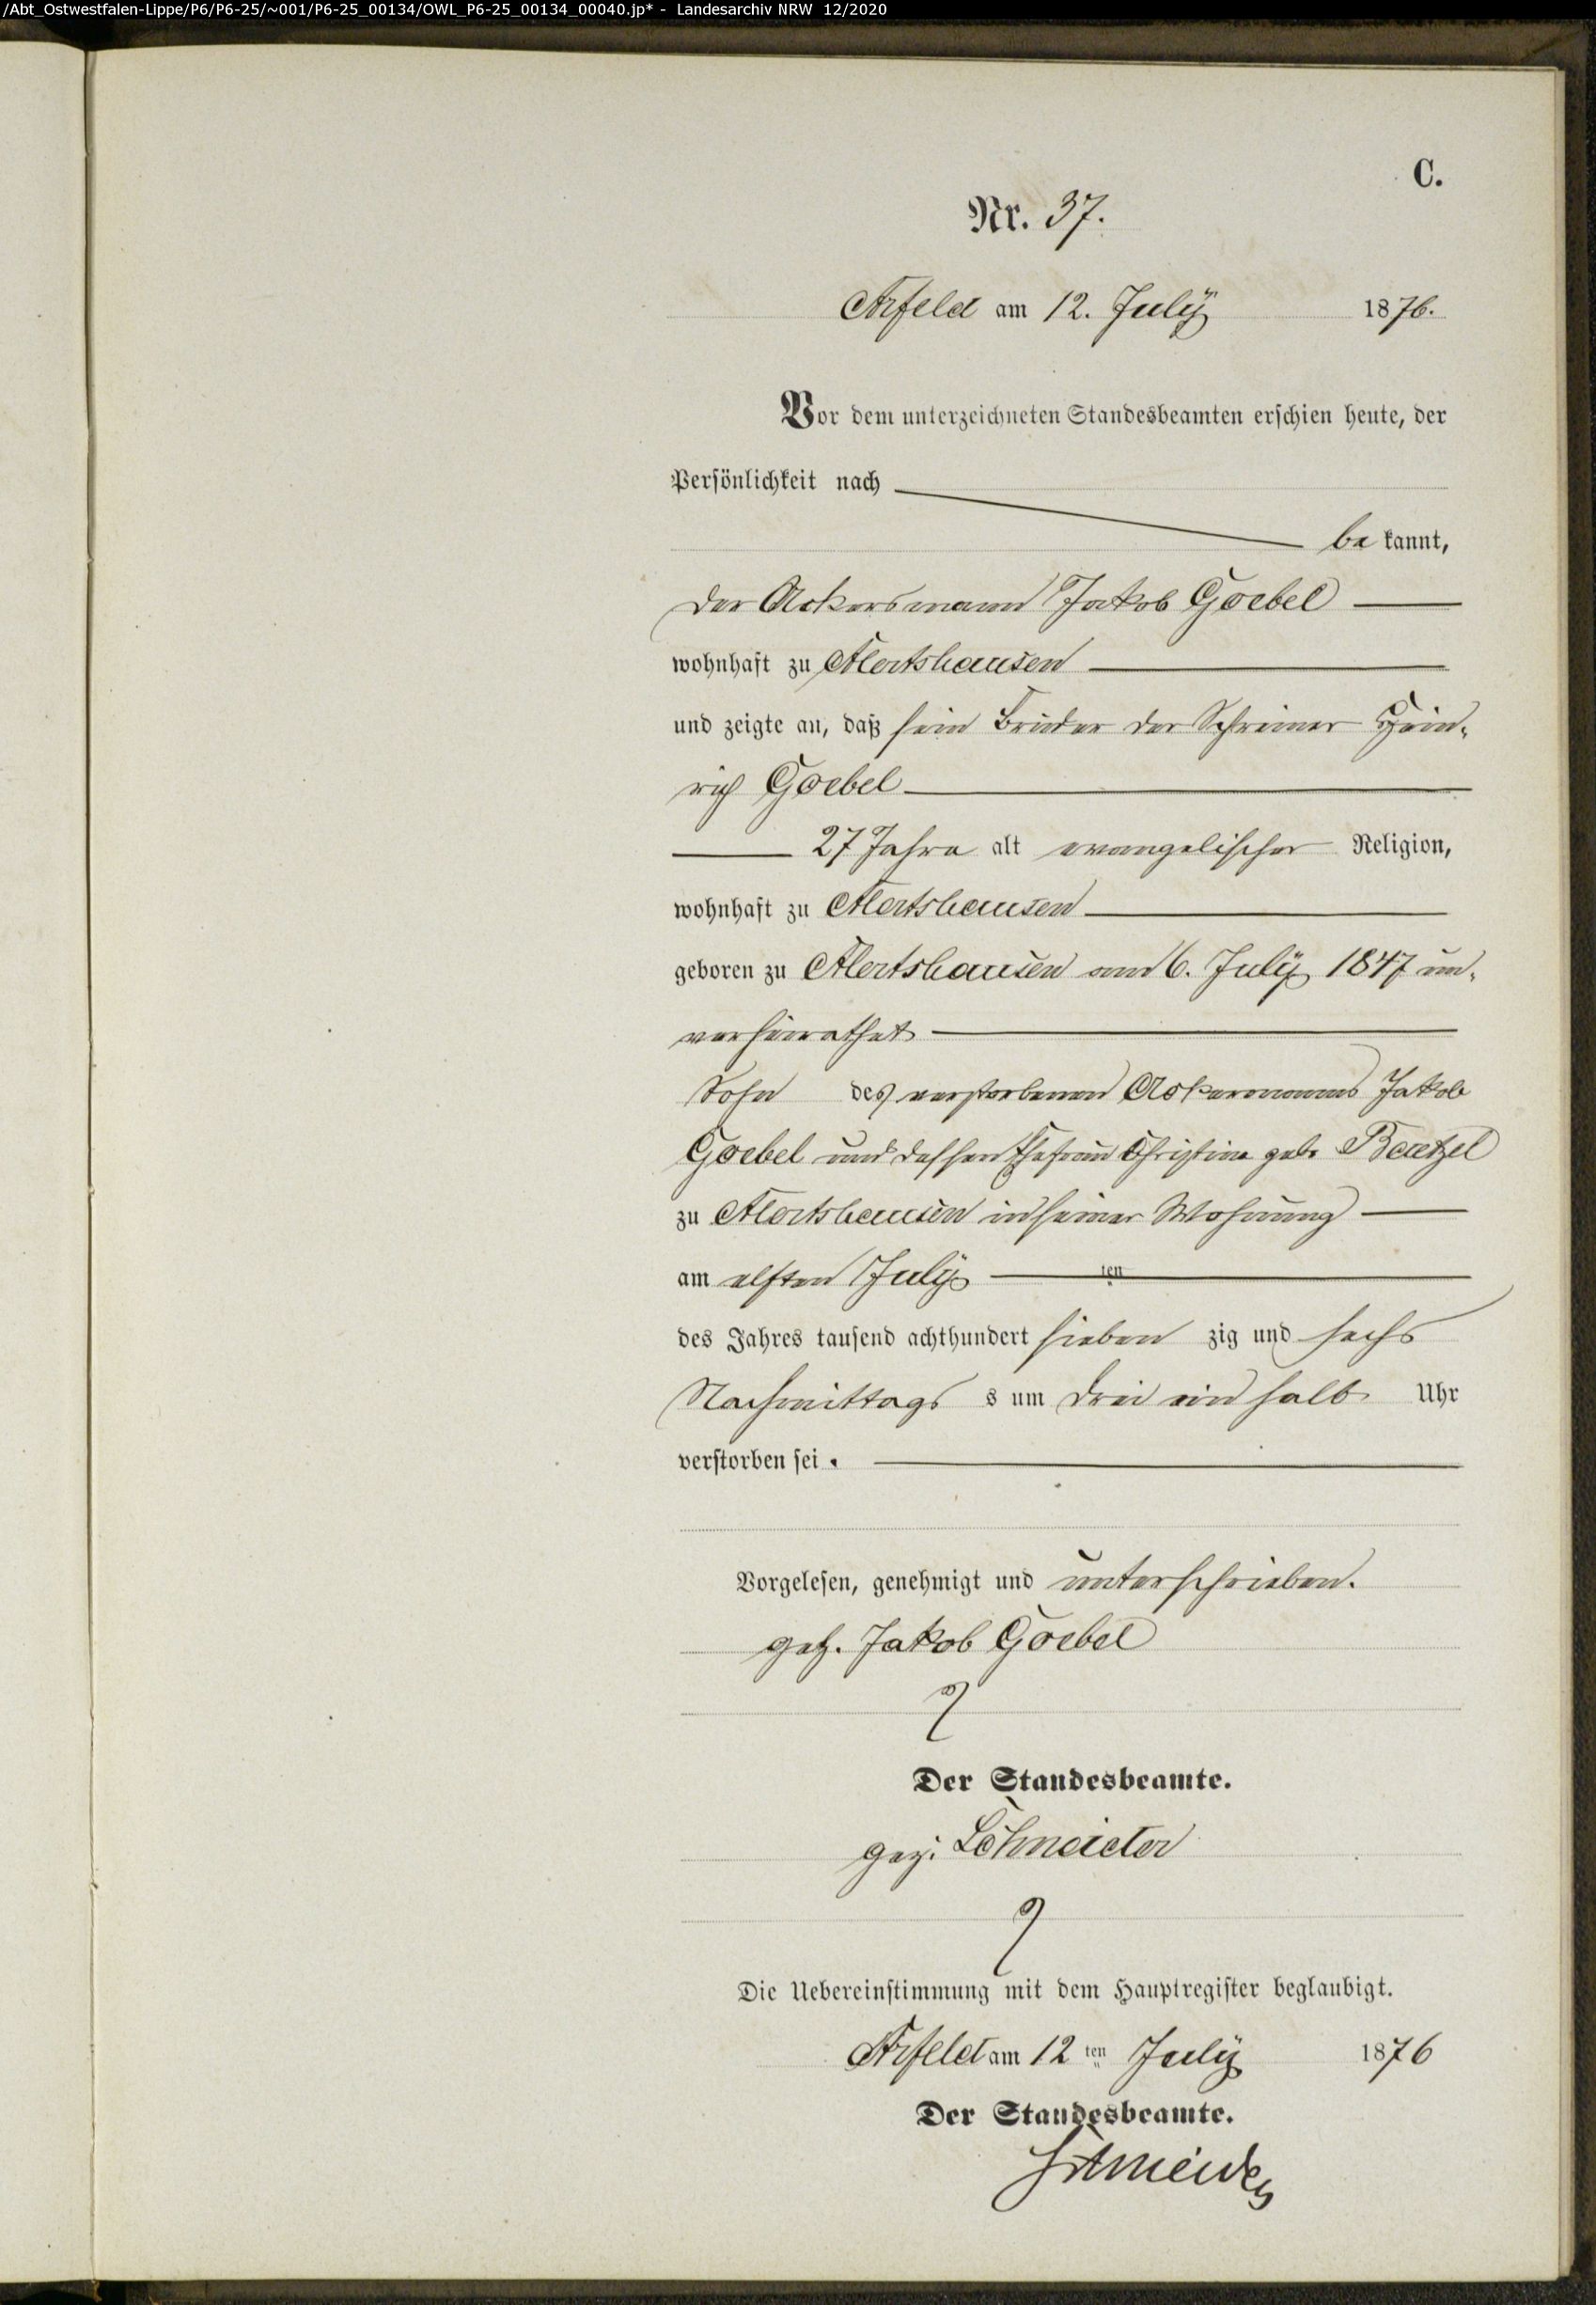 /Abt_Ostwestfalen-Lippe/P6/P6-25/~001/P6-25_00134/OWL_P6-25_00134_00040.jp* - Landesarchiv NRW 12/2020
C.
Nr. 37.
Arfeld am 12. July 1876.
Vor dem unterzeichneten Standesbeamten erschien heute, der
Persönlichkeit nach
be kannt,
der Ackersmann Jakob Goebel
wohnhaft zu Alertshausen
und zeigte an, daß sein Bruder der Schreiner Hein-
rich Goebel
27 Jahre alt evangelischer Religion,
wohnhaft zu Alertshausen
geboren zu Alertshausen am 6. July 1847 un-
verheirathet
Sohn des verstorbenen Ackermanns Jakob
Goebel und dessen Ehefrau Christine geb.
zu Alertshausen in seiner Wohnung
am elften July ten
des Jahres tausend achthundert sieben zig und sechs
Nachmittags s um drei ein halb Uhr
verstorben sei.
Vorgelesen, genehmigt und unterschrieben.
gez. Jakob Goebel
Der Standesbeamte.
gez. Schneider
Die Uebereinstimmung mit dem Hauptregister beglaubigt.
Arfeld am 12 ten July 1876
Der Standesbeamte.
Schneider